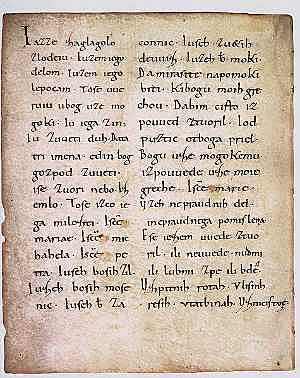 Iazze zaglagolo
zlodeiu. Iuzem iego
delom. Iuzem iego
lepocam. Tose uue
ruiu ubog uze mo
goki. Iu iega zin.
Iu zuueti duh. Data
tri imena. edin bog
gozpod zuueti.
ise zuori nebo
lo. Tose izco ie
ga milosti. Isce
mariae. Isce mic
hahela. Isce. pe
tra. Iusech bosih zl.
Iusech bosih mose
nic. Iusech b. za
connic. Iusech zuetih
deuuiz. Iusech b. moki.
Da mirasite napomoki
biti. Kibogu moih gre
chou. Dabim cisto iz
pouued ztuoril. Iod
puztic otboga priel.
Bogu uze mogokemu
izpouuede uze moie
greche. Isce marie.
uzeh nepraudnih del.
inepraudnega pomislena.
Ese iesem uuede ztuo
ril. ili neuuede. nudmi
ili lubmi zpe. ili bde.
Uzpitnih rotah. Ulisnih
resih. Utatbinah. Uznicistue.